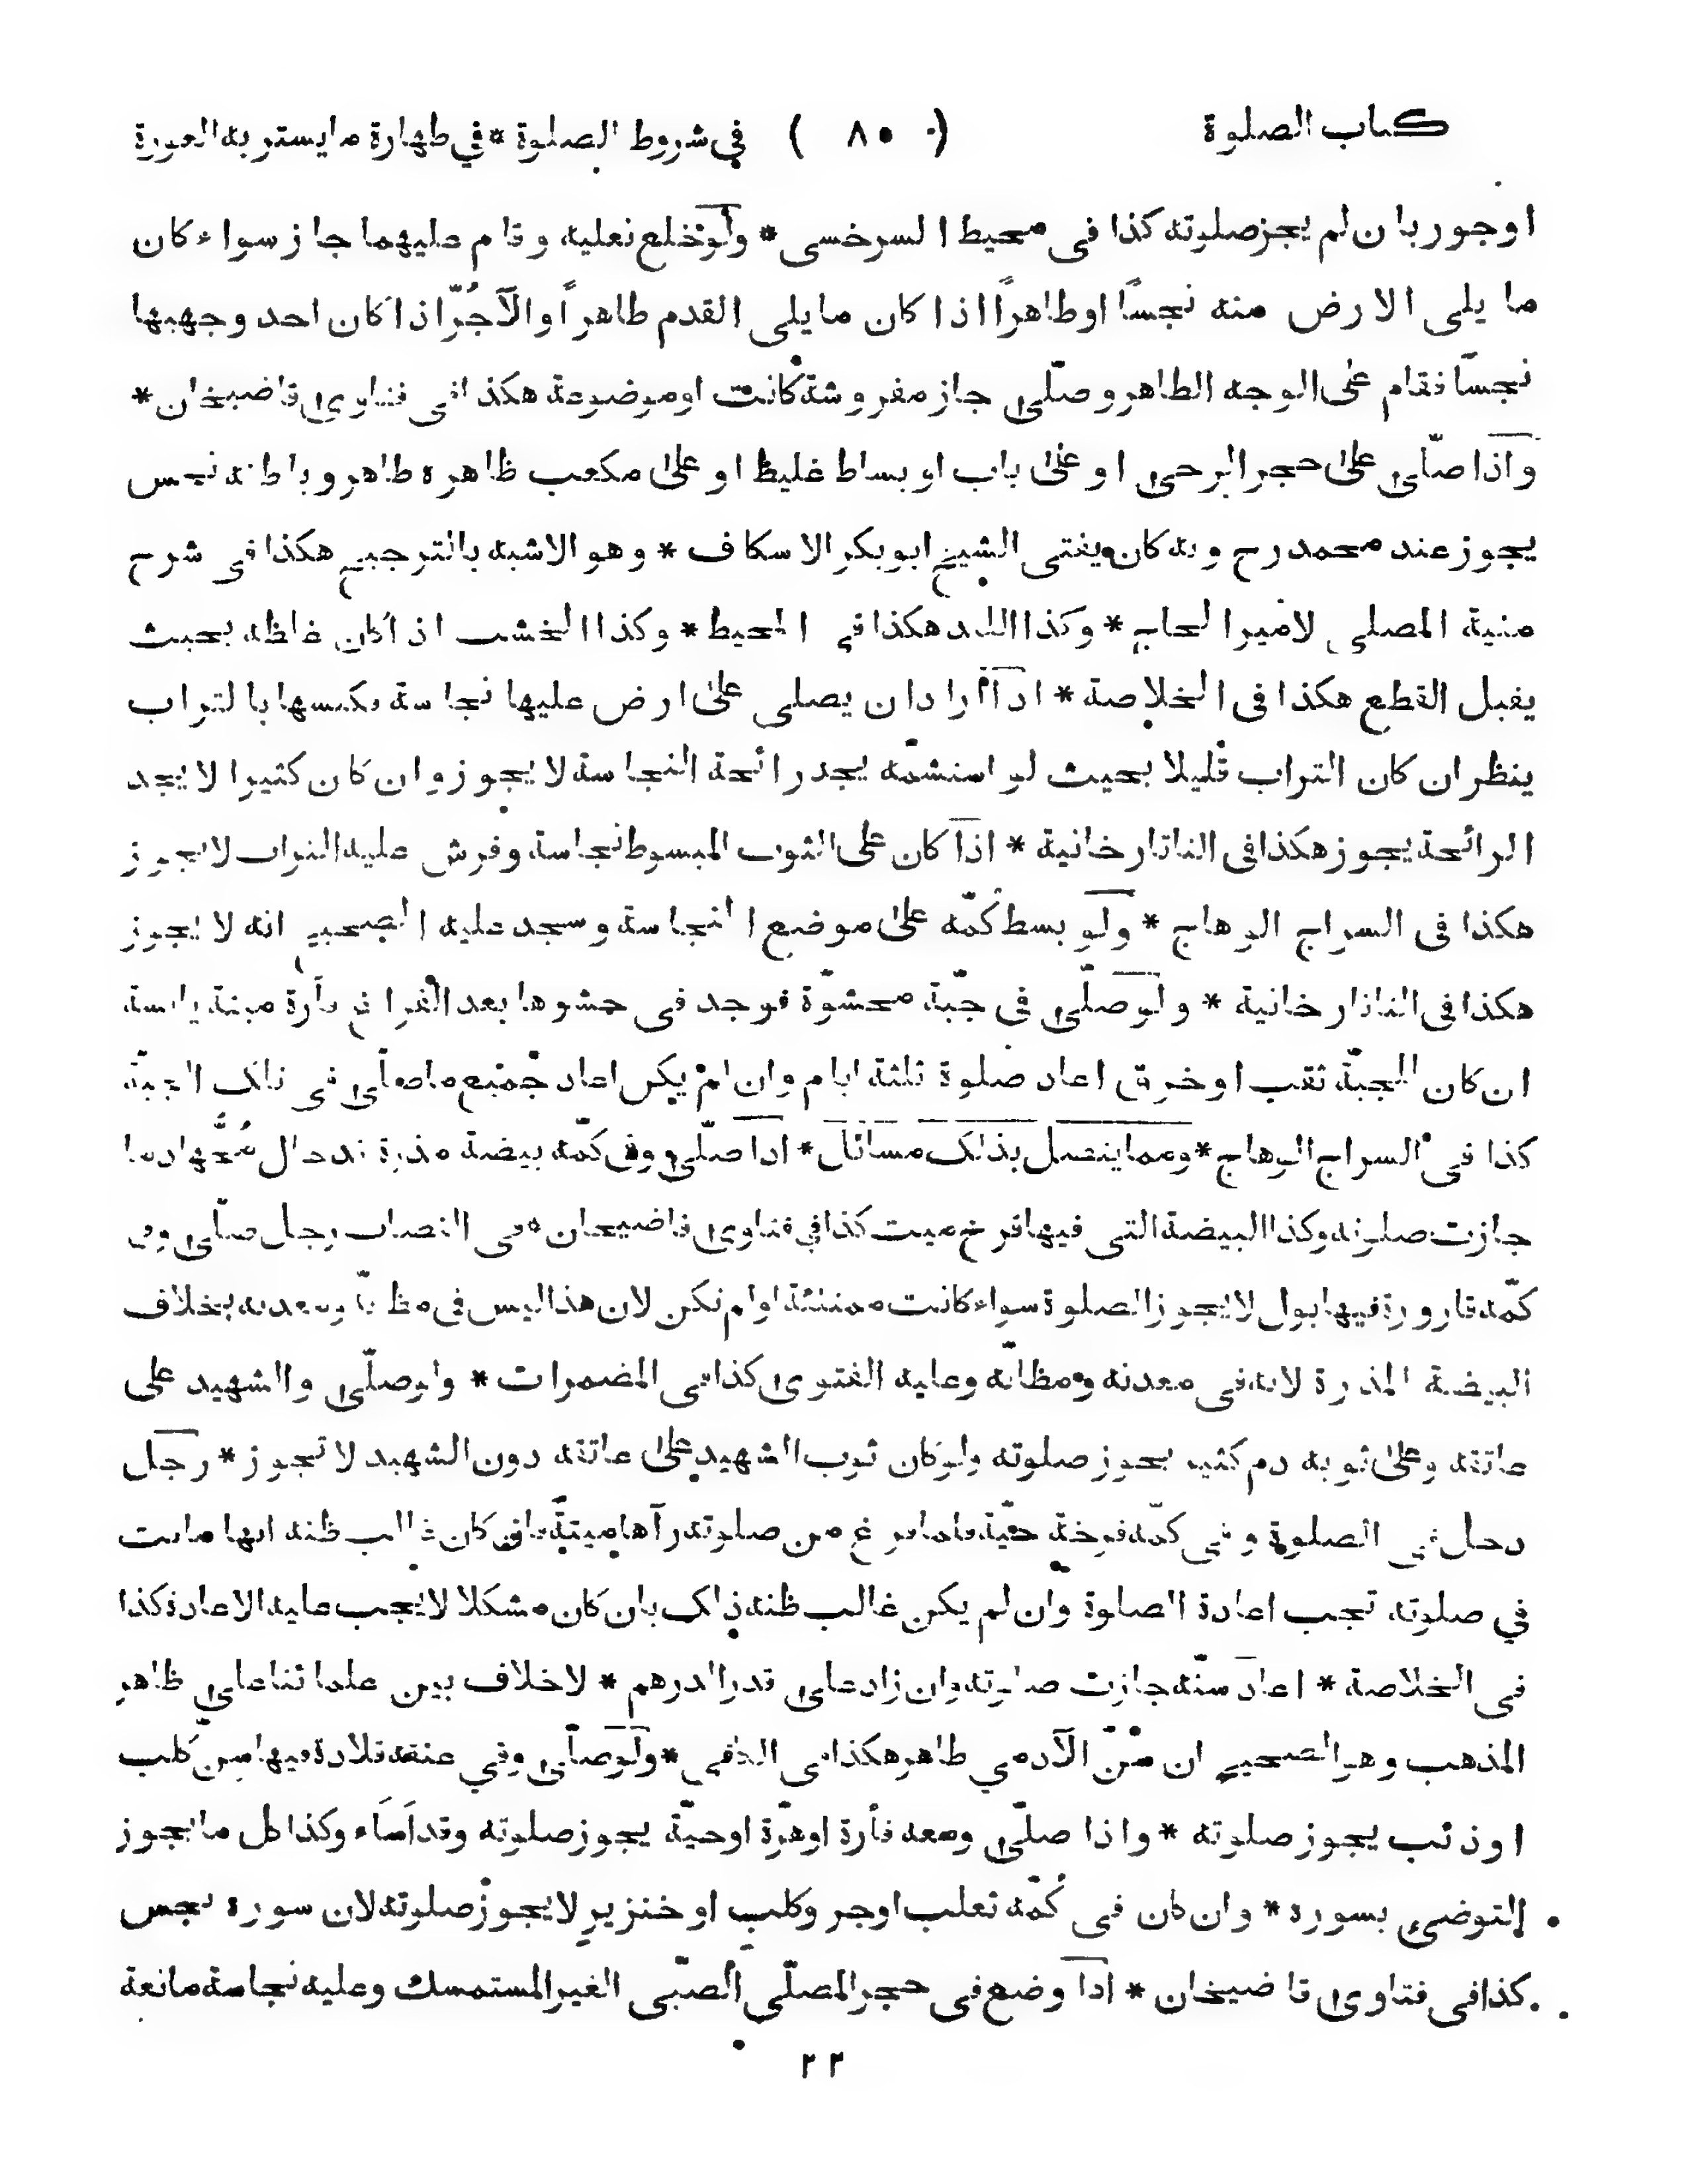 كتاب الصلوة ( ٨٥ ) في شروط الصلوة * في طهارة ما يستر به العورة
او جوربان لم يجز صلوته كذا فى محيط السرخسى * ولو خلع نعليه وقام عليهما جاز سواء كان
ما يلى الارض منه نجسًا او طاهرًا اذا كان ما يلى القدم طاهرًا والآجُرّ اذا كان احد وجهيها
نجسًا فقام على الوجه الطاهر وصلّى جاز مفروشة كانت او موضوعة هكذا فى فتاوى قاضيخان *
واذا صلّى على حجر الرحى او على باب او بساط غليظ او على مكعب ظاهره طاهر وباطنه نجس
يجوز عند محمد رح وبه كان يفتى الشيخ ابوبكر الاسكاف * وهو الاشبه بالترجيح هكذا فى شرح
منية المصلى لامير الحاج * وكذا اللبد هكذا فى المحيط * وكذا الخشب اذا كان غلظه بحيث
يقبل القطع هكذا فى الخلاصة * اذا اراد ان يصلى على ارض عليها نجاسة فكبسها بالتراب
ينظر ان كان التراب قليلا بحيث لو استشمّه يجد رائحة النجاسة لا يجوز وان كان كثيرا لا يجد
الرائحة يجوز هكذا فى التاتارخانية * اذا كان على الثوب المبسوط نجاسة وفرش عليه التراب لا يجوز
هكذا فى السراج الوهاج * ولو بسط كمّه على موضع النجاسة وسجد عليه الصحيح انه لا يجوز
هكذا فى التاتارخانية * ولو صلّى فى جبّة محشوّة فوجد فى حشوها بعد الفراغ فأرة ميتة يابسة
ان كان للجبّة ثقب او خرق اعاد صلوة ثلثة ايام وان لم يكن اعاد جميع ما صلّى فى تلك الجبّة
كذا فى السراج الوهاج * ومما يتصل بذلك مسائل * اذا صلّى وفى كمّه بيضة مذرة قد حال مُحُّها دما
جازت صلوته وكذا البيضة التى فيها فرخ ميت كذا في فتاوى قاضيخان * فى النصاب رجل صلّى وفى
كمّه قارورة فيها بول لا يجوز الصلوة سواء كانت ممتلئة او لم تكن لان هذا ليس فى مظانّه ومعدنه بخلاف
البيضة المذرة لانه فى معدنه ومظانّه وعليه الفتوى كذا فى المضمرات * ولو صلّى والشهيد على
عاتقه وعلى ثوبه دم كثير يجوز صلوته ولو كان ثوب الشهيد على عاتقه دون الشهيد لا تجوز * رجل
دخل فى الصلوة وفى كمّه فرخة حيّة فلما فرغ من صلوته رآها ميتة فان كان غالب ظنه انها ماتت
في صلوته تجب اعادة الصلوة وان لم يكن غالب ظنه ذلك بان كان مشكلا لا يجب عليه الاعادة كذا
فى الخلاصة * اعاد سنّه جازت صلوته وان زاد على قدر الدرهم * لا خلاف بين علمائنا على ظاهر
المذهب وهو الصحيح ان سنّ الآدمي طاهر هكذا فى الكافى * ولو صلّى وفي عنقه قلادة فيها سنّ كلب
او ذئب يجوز صلوته * واذا صلّى ومعه فأرة او هرّة او حيّة يجوز صلوته وقد اَسَاء وكذا كل ما يجوز
التوضى بسوره * وان كان فى كُمّه ثعلب او جرو كلب او خنزير لا يجوز صلوته لان سوره نجس
كذا فى فتاوى قاضيخان * اذا وضع فى حجر المصلّى الصبّى الغير المستمسك وعليه نجاسة مانعة
٢٢